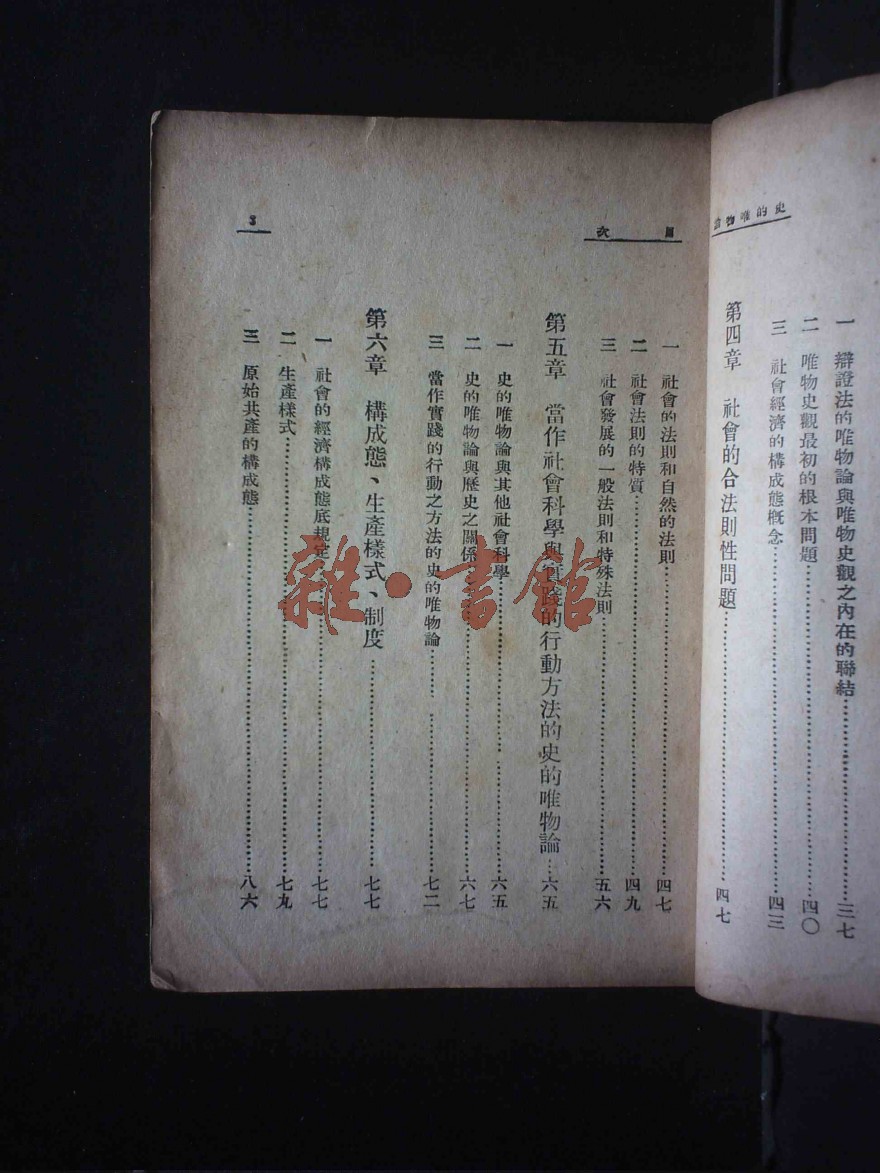 史的唯物論
一 辯證法的唯物論與唯物史觀之內在的聯結……三七
二 唯物史觀最初的根本問題……四〇
三 社會經濟的構成態概念……四三
第四章 社會的合法則性問題……四七
目次
一 社會的法則和自然的法則……四七
二 社會法則的特質……四九
三 社會發展的一般法則和特殊法則……五六
第五章 當作社會科學與實踐的行動方法的史的唯物論……六五
一 史的唯物論與其他社會科學……六五
二 史的唯物論與歷史之關係……六七
三 當作實踐的行動之方法的史的唯物論……七二
第六章 構成態、生產樣式、制度……七七
一 社會的經濟構成態底規定……七七
二 生產樣式……七九
三 原始共產的構成態……八六
3
雜·書館